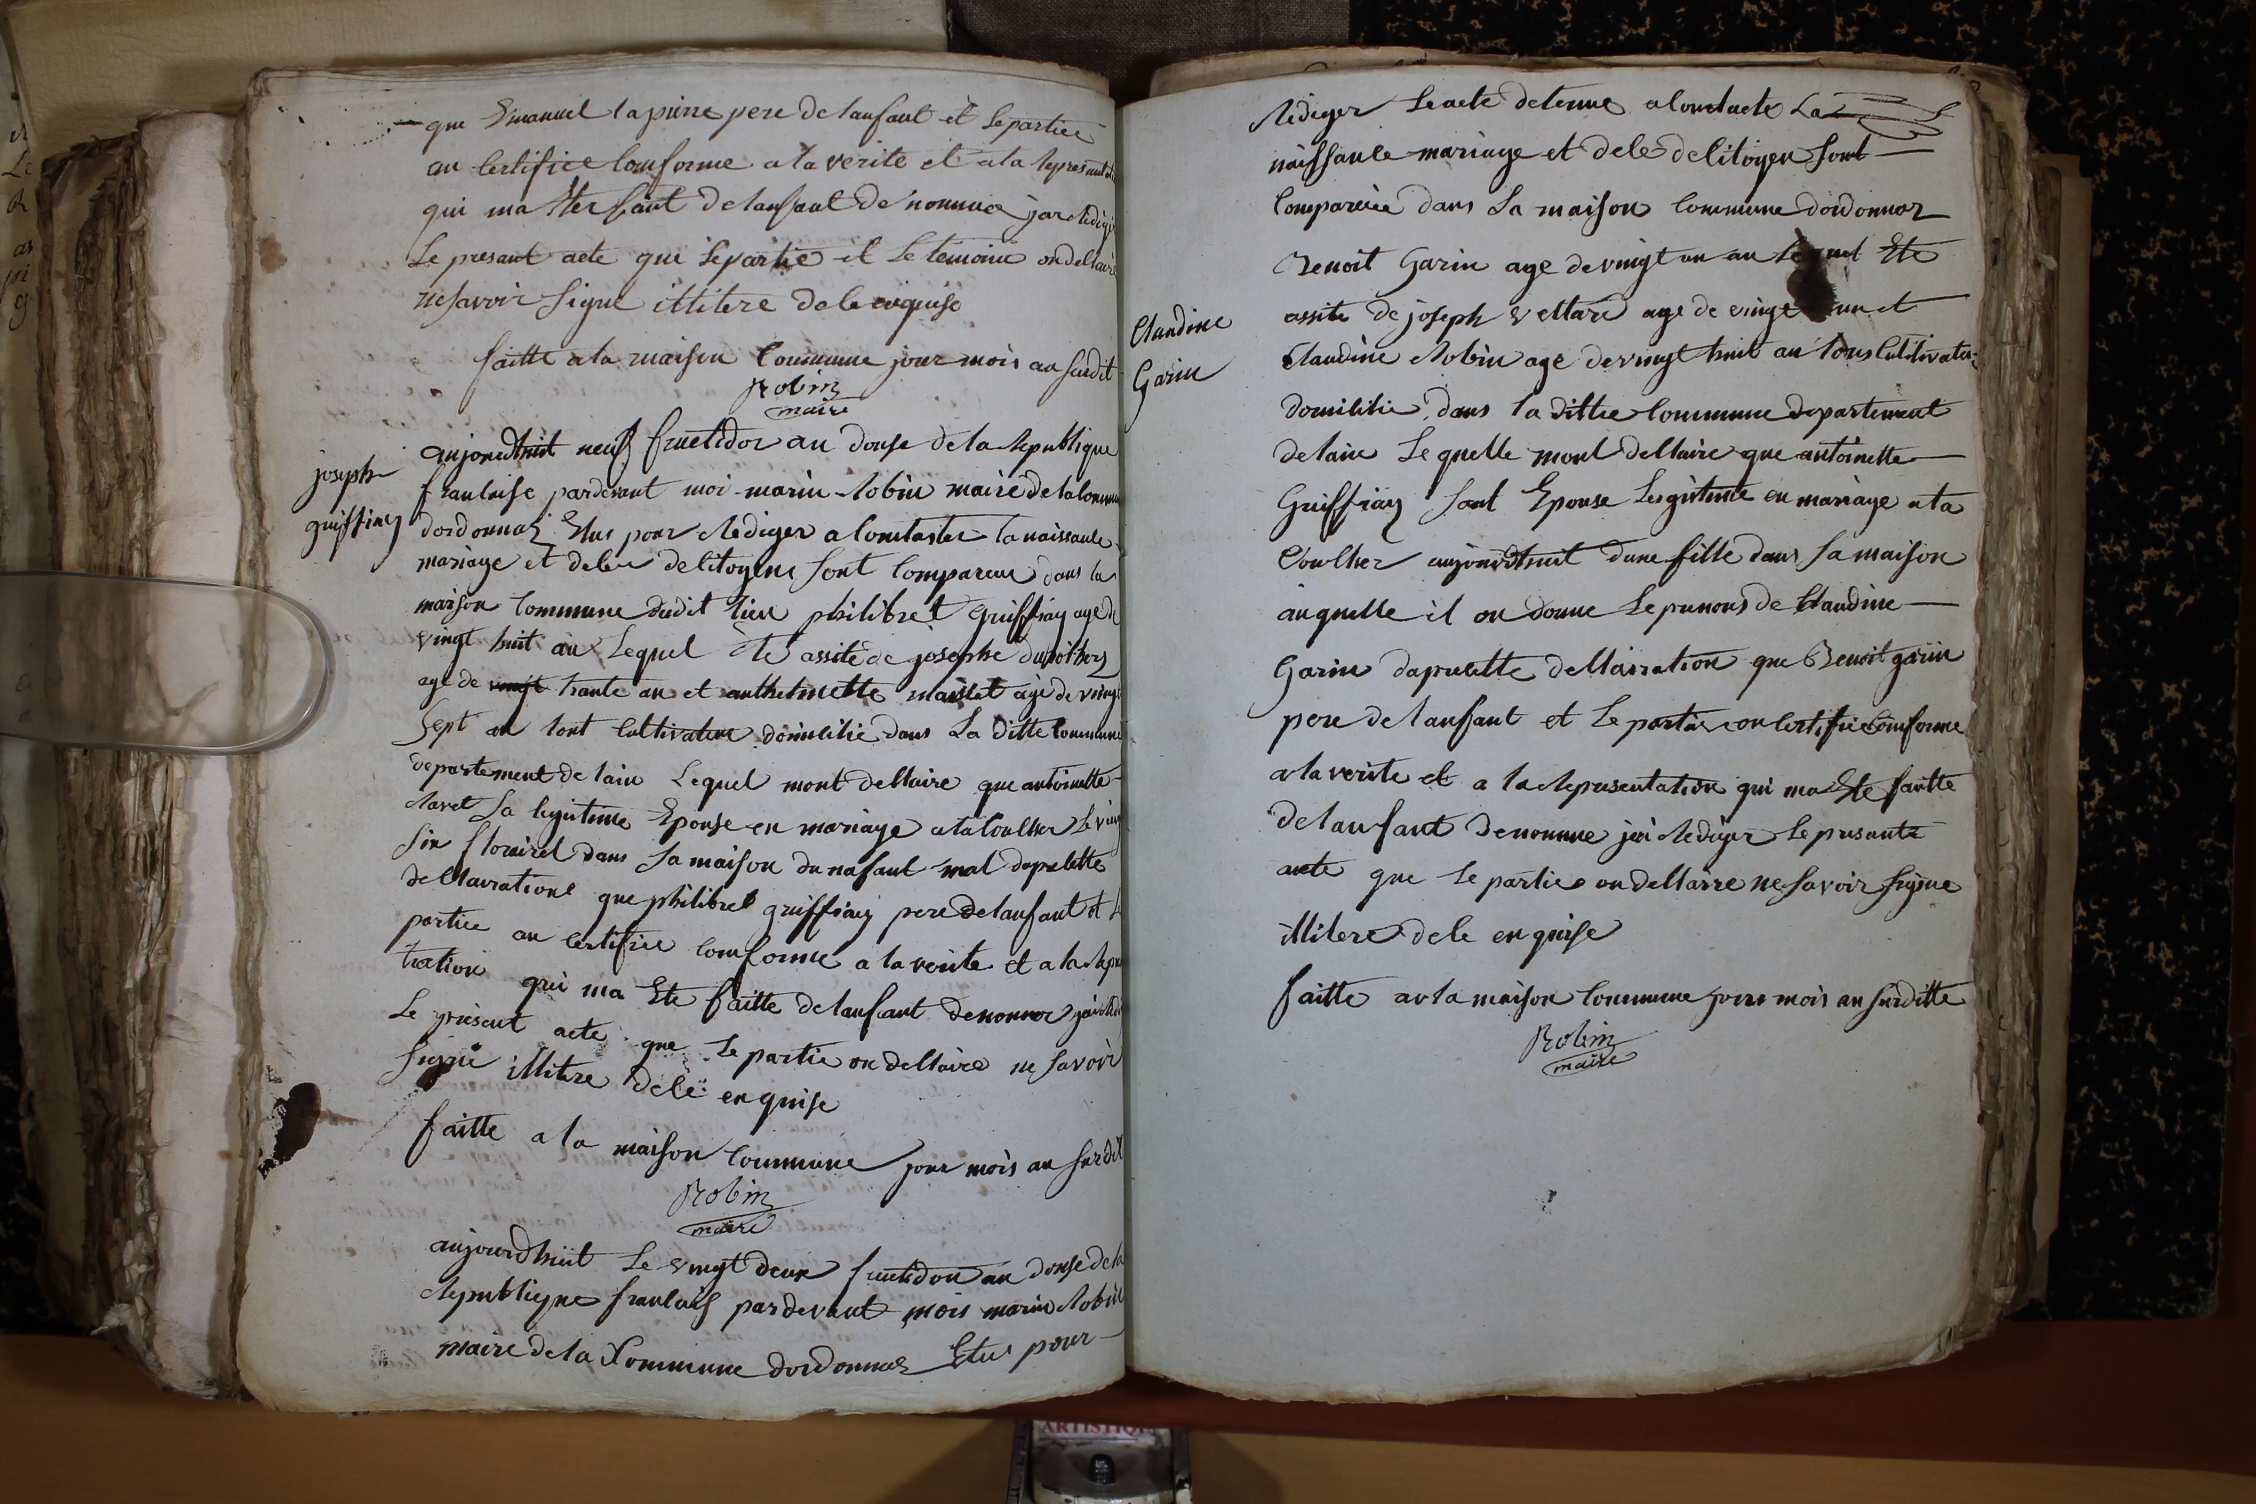 que Emanuel lapierre pere de lanfant et le partiee
an certifiee conforme a la verite et a la represant
qui ma Ete faite de lanfant de nommé jai Redige
Le presant acte que le partie et le temoins on declaire
ne savoir signe illitere de le enquise
faitte a la maison commune jour mois an surdit
Robin
maire
joseph
guiffray
aujourdhuit neuf fructidor an douse de la Republique
francaise pardevant moi marin Robin maire de la commune
dordonnaz Elus pour Rediger a constaster la naissance
mariage et dece de citoyens sont comparcue dans la
maison commune dudit lieu philibret guiffray age de
vingt huit an Lequel Ete assité de josephe
age de vingt trante an et anthelmette age de vingt
sept an tout cultivateur domicilie dans La ditte commune
departement de lain Lequel mont declaire que antoinette
La legitime Epouse en mariage a la coulher le ving
sin floreirel dans sa maison du nafant mal dapre cette
declairatione que philibret guiffray pere de lanfant et le
partiee an certifiee conforme a la verite et a la Repre
tration qui ma Ete faitte de lanfant denomme jai Redi
Le present acte que le partie on declaire ne savoir
signe illitere de le enquise
faitte a la maison commune jour mois an surdit
Robin
maire
aujourdhuit Le vingt deux fructidor an douse de la
Republique francais pardevant mois marin Robin
maire de la Commune dordonnaz Elus pour
Rediger Le acte detenue a constacte La
naissance mariage et dece de citoyen sont
comparcie dans La maison commune dordonnaz
Benoit Garin age de vingt un an Lequel Ete
Claudine
Garin
assite de joseph vellard age de vingt un et
Claudine Robin age de vingt huit an tous cultivateur
domicilie dans la dittee commune departement
de lain Le quelle mont declaire que antoinette
Guiffray sont Epouse Legitime en mariage a la
Coulher aujourdhuit dune fille dans sa maison
au quelle il on donne Le prenons de Claudine
Garin dapre cette declairation que Benoit garin
pere de lanfant et Le partie on certifie comforme
a la verite et a la Representation qui ma Ete faitte
de lanfant denomme jai Rediger Le presante
acte que le partie on declaire ne savoir signe
illitere de le enquise
faitte a la maison commune jour mois an surditte
Robin
maire
ARTISTIQ